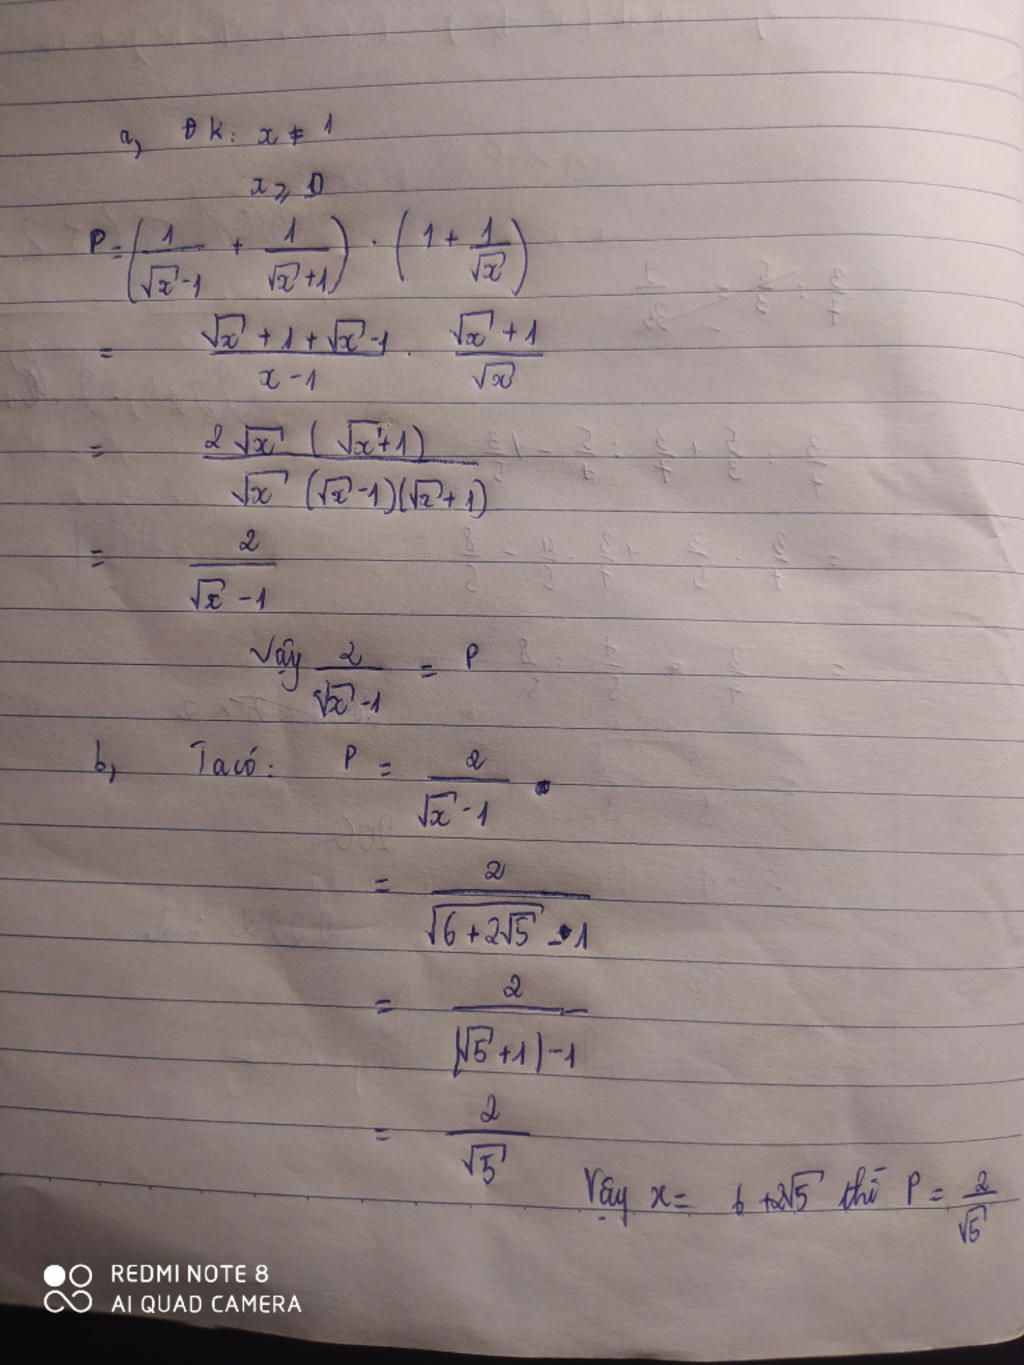 a, ĐK: x ≠ 1
x ⩾ 0
P = (1/(√x - 1) + 1/(√x + 1)) . (1 + 1/√x)
= (√x + 1 + √x - 1)/(x - 1) . (√x + 1)/√x
= 2√x (√x + 1)/(√x (√x - 1)(√x + 1))
= 2/(√x - 1)
Vậy 2/(√x - 1) = P
b, Ta có: P = 2/(√x - 1)
= 2/(√(6 + 2√5) - 1)
= 2/(|√5 + 1| - 1)
= 2/√5
Vậy x = 6 + 2√5 thì P = 2/√5
REDMI NOTE 8
AI QUAD CAMERA